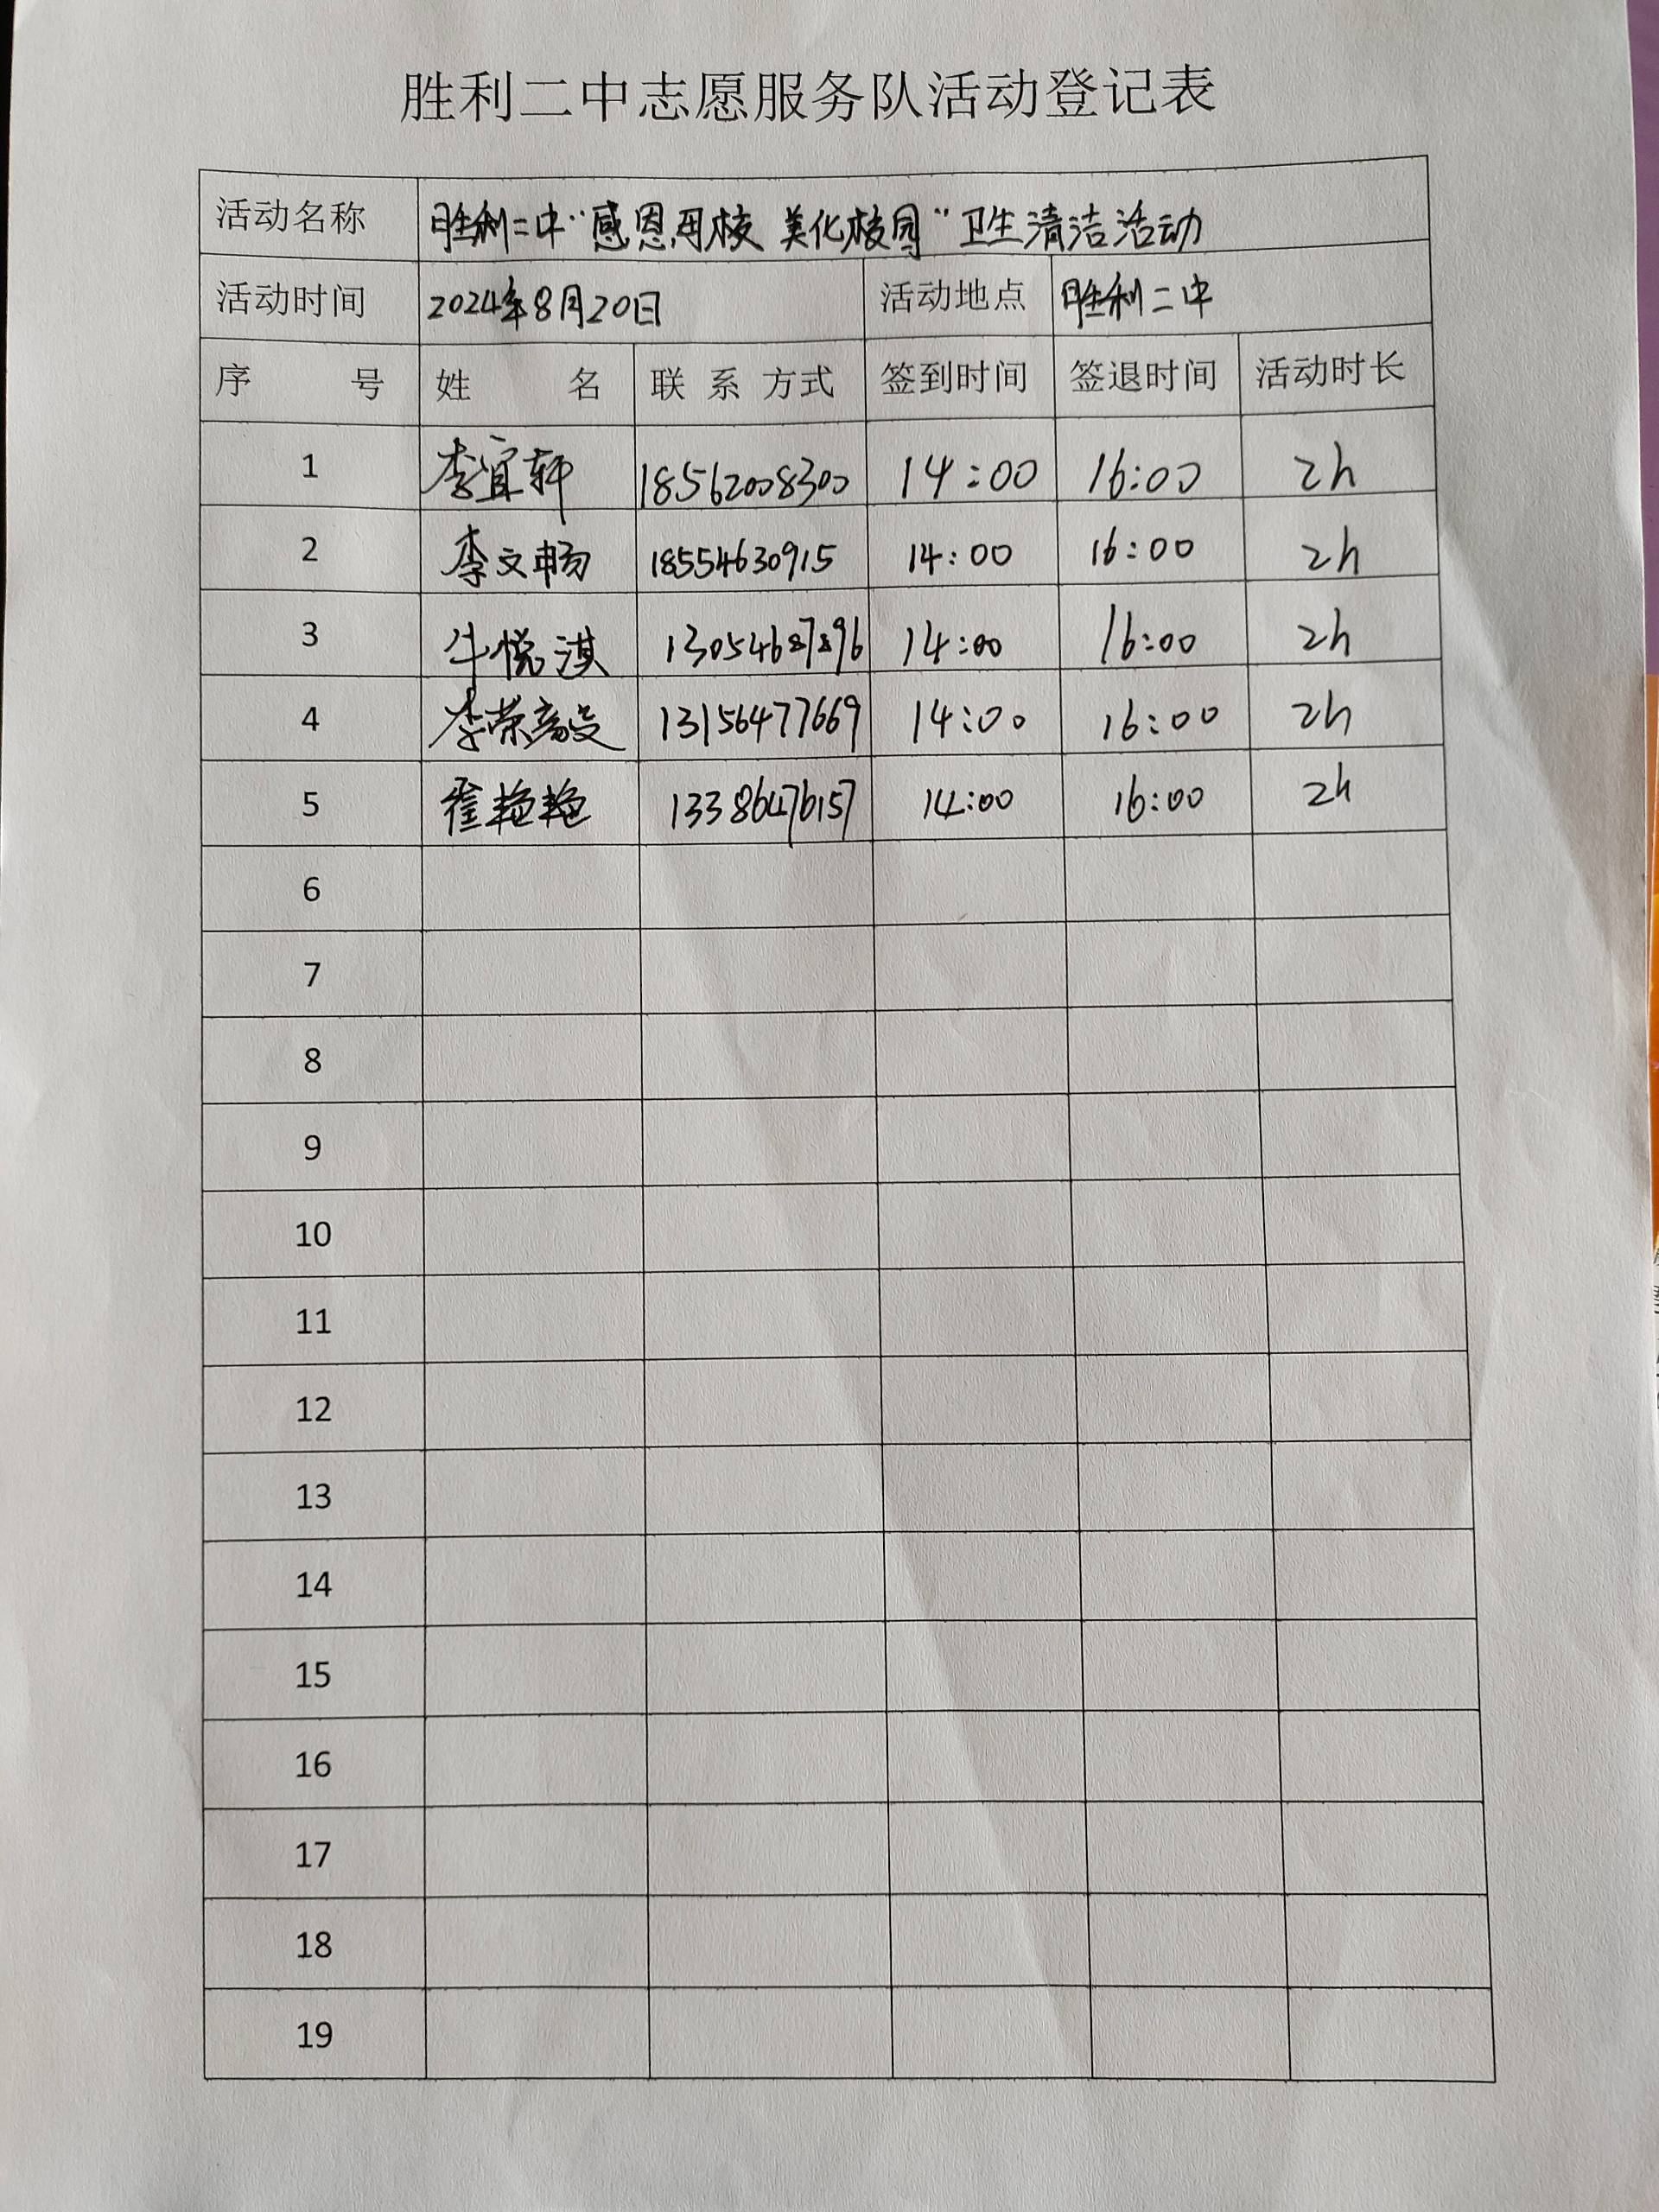 胜利二中志愿服务队活动登记表
活动名称 胜利二中“感恩母校 美化校园”卫生清洁活动
活动时间 2024年8月20日 活动地点 胜利二中
序号 姓名 联系方式 签到时间 签退时间 活动时长
1 李宜轩 18562008300 14:00 16:00 2h
2 李文畅 18554630915 14:00 16:00 2h
3 牛悦淇 13054687896 14:00 16:00 2h
4 李荣 13156477669 14:00 16:00 2h
5 霍艳艳 13386476157 14:00 16:00 2h
6
7
8
9
10
11
12
13
14
15
16
17
18
19